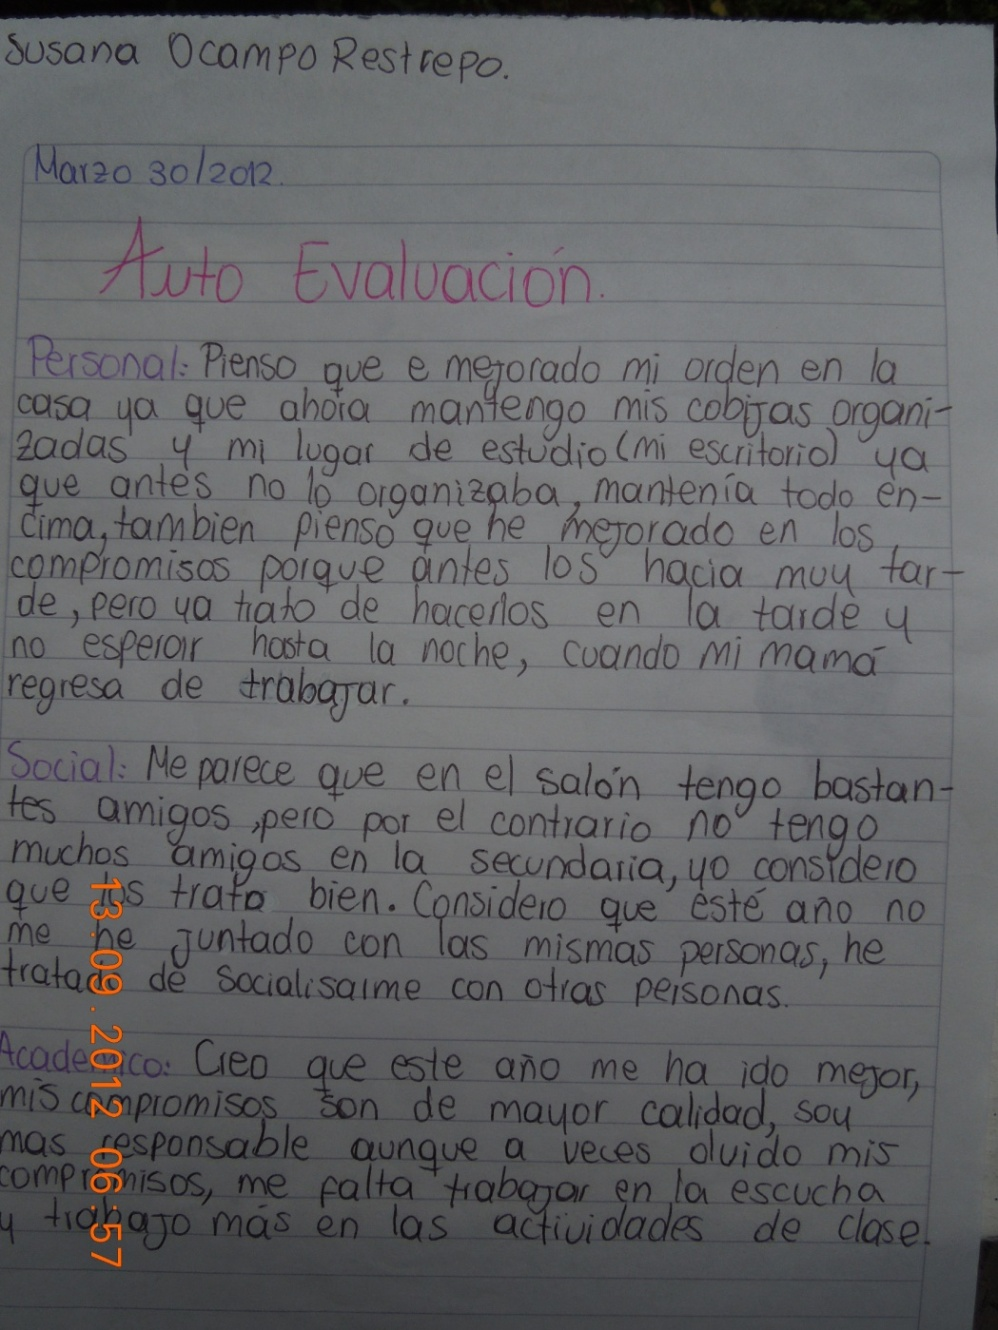 Susana Ocampo Restrepo.
Marzo 30/2012.
Auto Evaluación.
Personal: Pienso que e mejorado mi orden en la
casa ya que ahora mantengo mis cobijas organi-
zadas y mi lugar de estudio (mi escritorio) ya
que antes no lo organizaba, mantenía todo en-
cima, tambien pienso que he mejorado en los
compromisos porque antes los hacia muy tar-
de, pero ya trato de hacerlos en la tarde y
no esperar hasta la noche, cuando mi mamá
regresa de trabajar.
Social: Me parece que en el salón tengo bastan-
tes amigos, pero por el contrario no tengo
muchos amigos en la secundaria, yo considero
que los trato bien. Considero que esté año no
me he juntado con las mismas personas, he
tratado de socialisarme con otras personas.
Academico: Creo que este año me ha ido mejor,
mis compromisos son de mayor calidad, soy
mas responsable aunque a veces olvido mis
compromisos, me falta trabajar en la escucha
y trabajo más en las actividades de clase.
13.09.2012 06:57